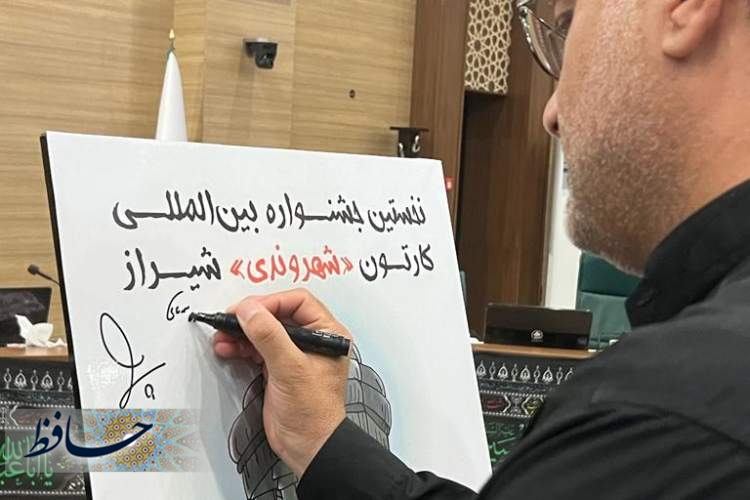 نخستین جشنواره بین‌المللی
کارتون «شهروندی» شیراز
حافظ